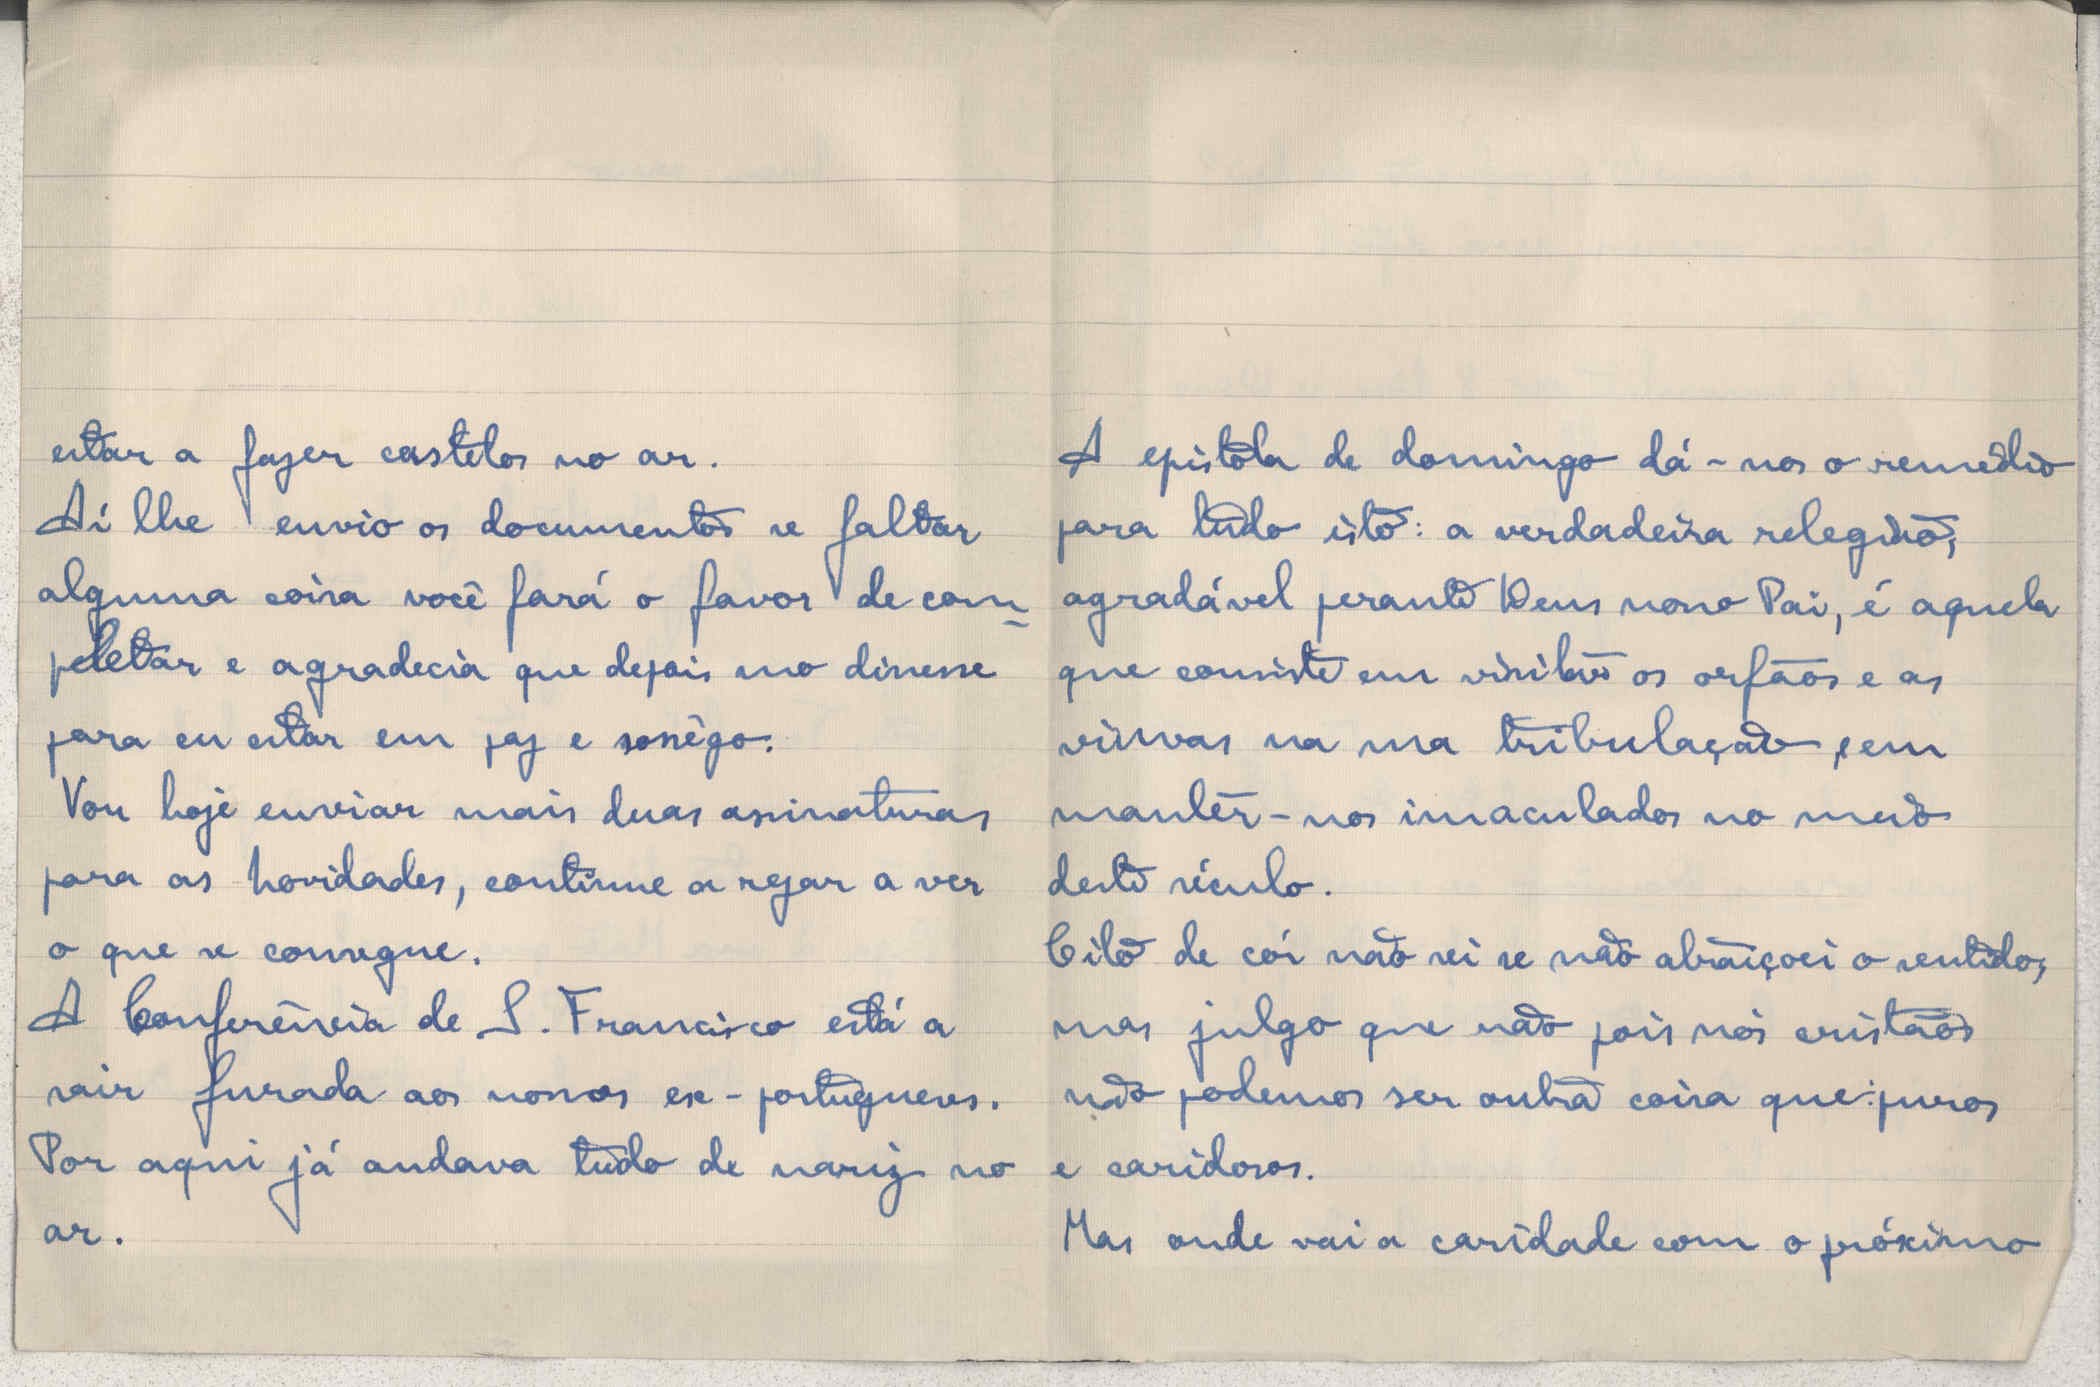 estar a fazer castelos no ar.
Aí lhe envio os documentos se faltar
alguma coisa você fará o favor de com-
pletar e agradecia que depois mo dissesse
para eu estar em paz e sossêgo.
Vou hoje enviar mais duas assinaturas
para as Novidades, continue a rezar a ver
o que se consegue.
A Conferência de S. Francisco está a
sair furada aos nossos ex-portugueses.
Por aqui já andava tudo de nariz no
ar.
A epistola de domingo dá-nos o remedio
para tudo isto: a verdadeira relegião,
agradável perante Deus nosso Pai, é aquela
que consiste em visitar os orfãos e as
viuvas na sua tribulação, e em
mantêr-nos imaculados no meio
deste século.
Cito de cór não sei se não atraiçoei o sentido,
mas julgo que não pois nós cristãos
não podemos ser outra coisa que: puros
e caridosos.
Mas onde vai a caridade com o próximo